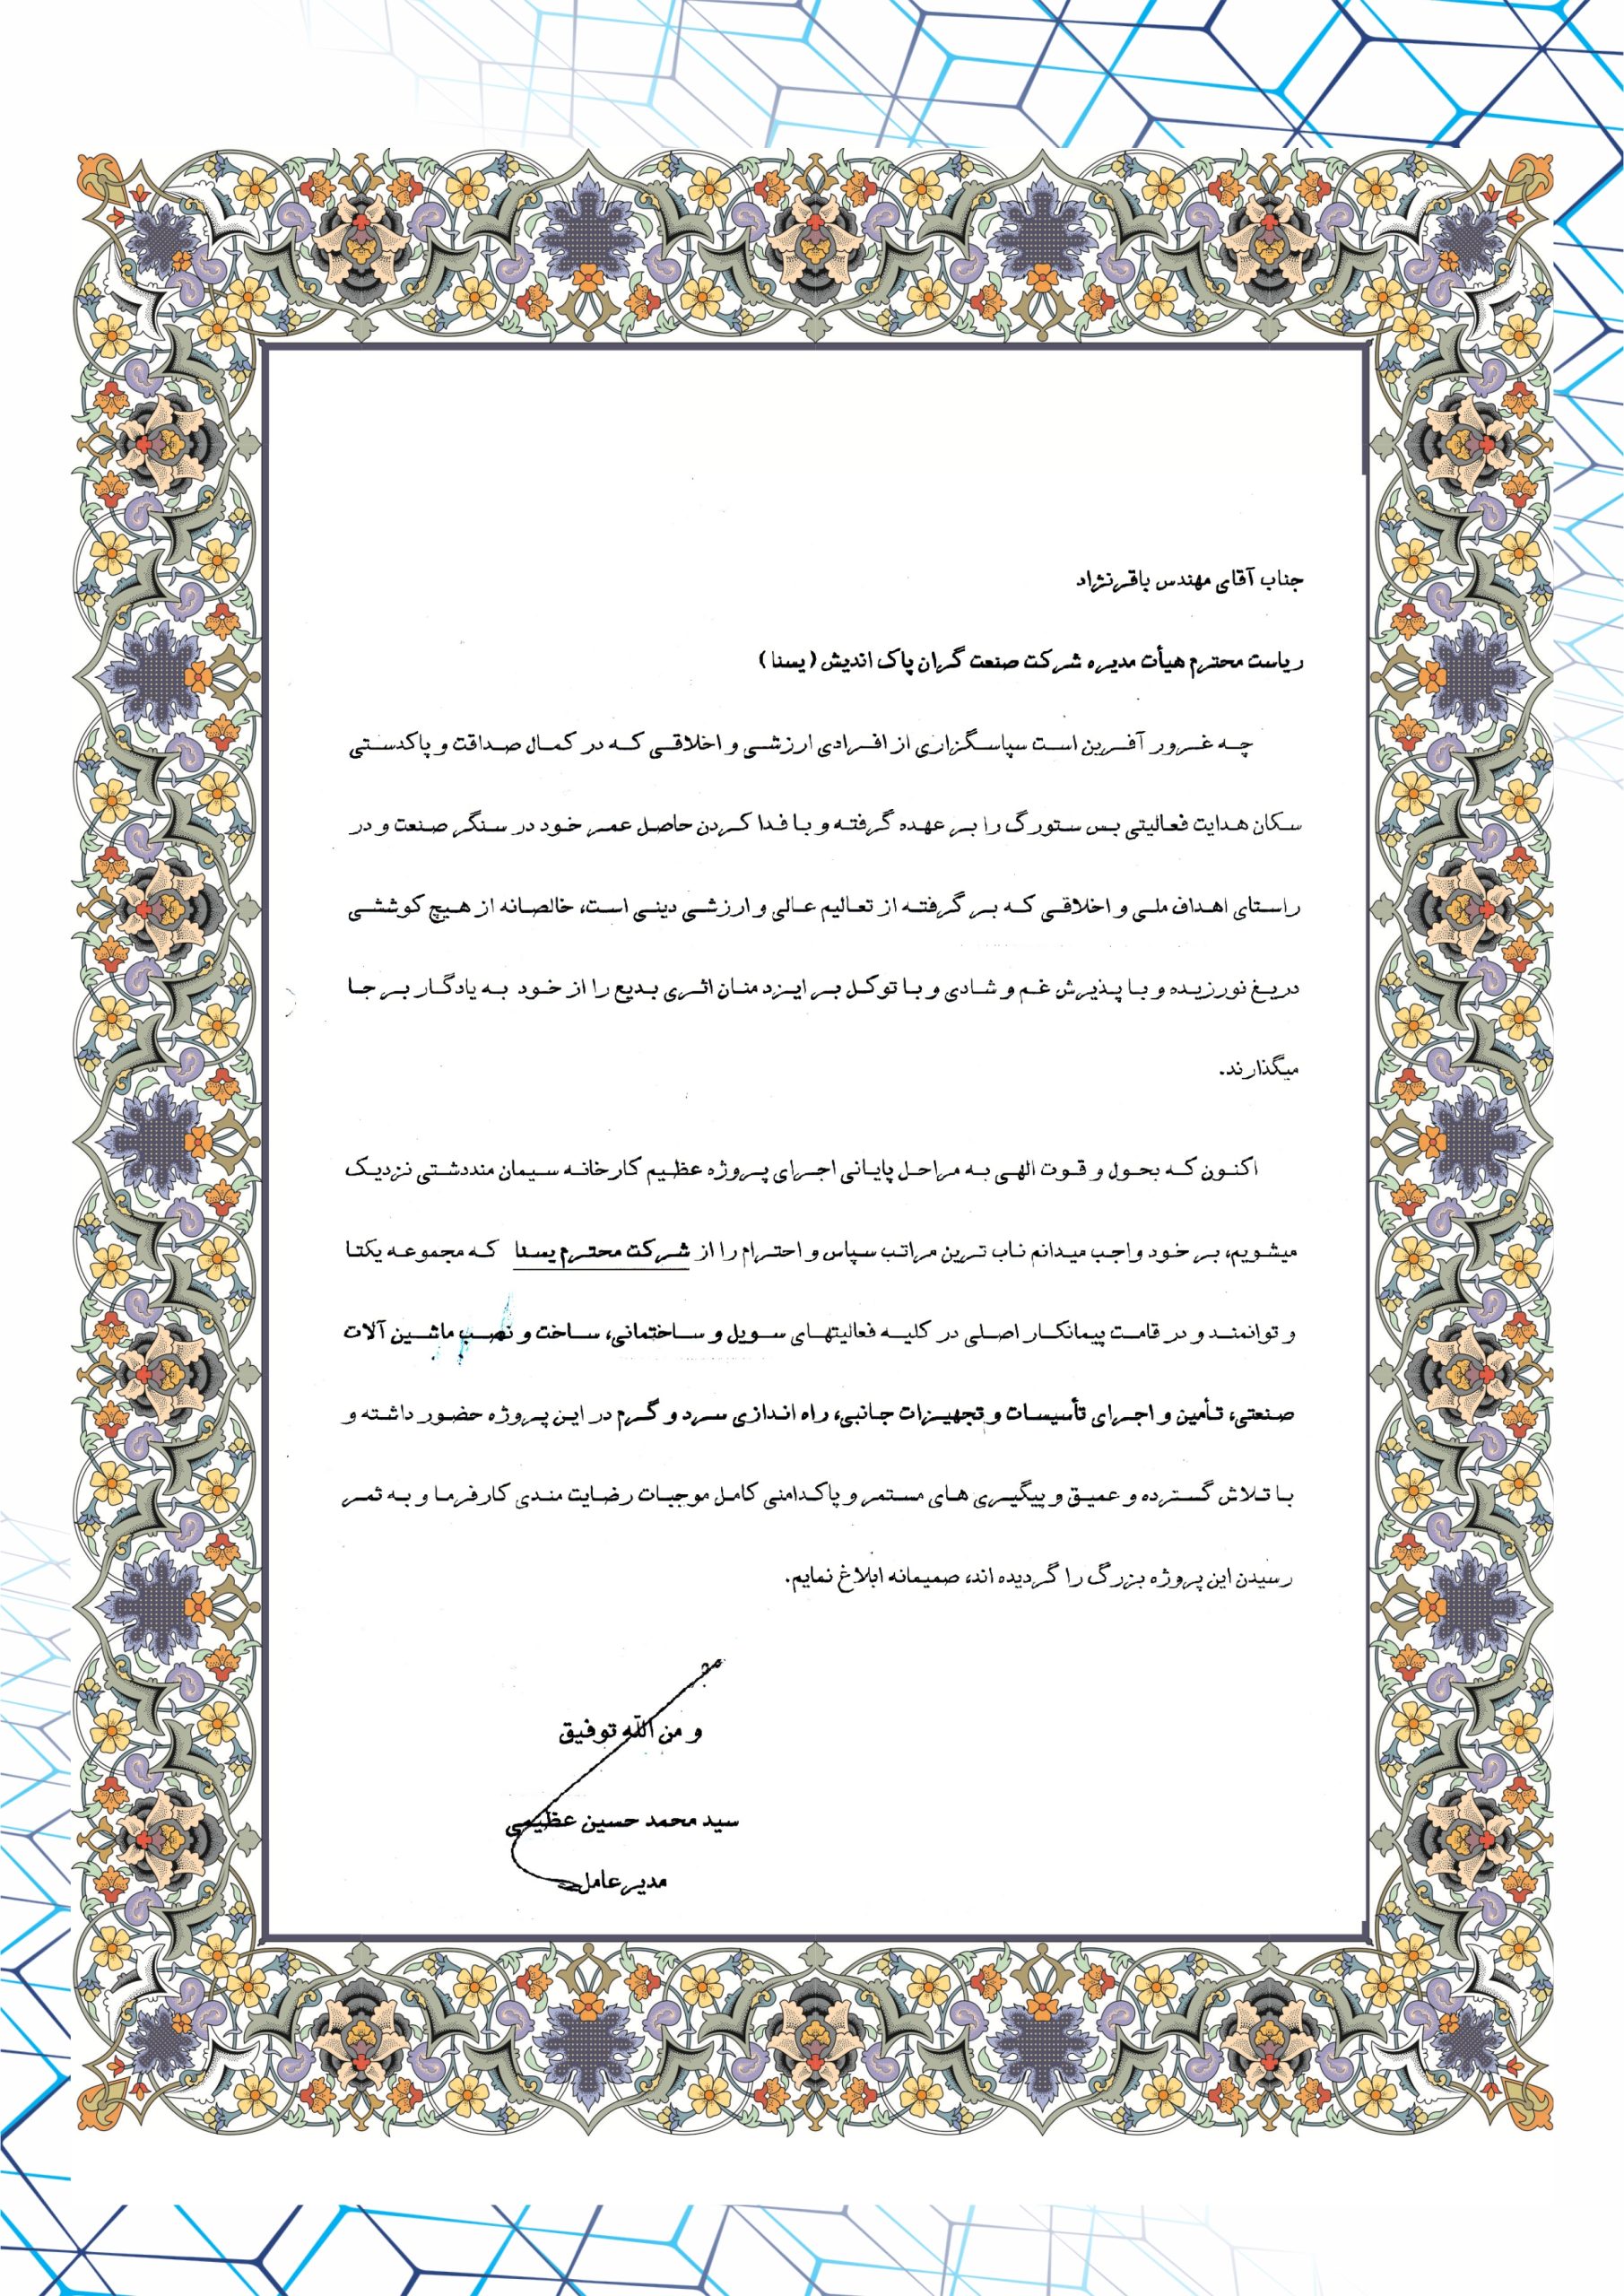 جناب آقای مهندس باقرنژاد
ریاست محترم هیأت مدیره شرکت صنعت گران پاک اندیش (یسنا)
چه غرور آفرین است سپاسگزاری از افرادی ارزشی و اخلاقی که در کمال صداقت و پاکدستی
سکان هدایت فعالیتی بس ستورگ را بر عهده گرفته و با فدا کردن حاصل عمر خود در سنگر صنعت و در
راستای اهداف ملی و اخلاقی که بر گرفته از تعالیم عالی و ارزشی دینی است، خالصانه از هیچ کوششی
دریغ نورزیده و با پذیرش غم و شادی و با توکل بر ایزد منان اثری بدیع را از خود به یادگار بر جا
میگذارند.
اکنون که بحول و قوت الهی به مراحل پایانی اجرای پروژه عظیم کارخانه سیمان منددشتی نزدیک
میشویم، بر خود واجب میدانم ناب ترین مراتب سپاس و احترام را از شرکت محترم یسنا که مجموعه یکتا
و توانمند و در قامت پیمانکار اصلی در کلیه فعالیتهای سویل و ساختمانی، ساخت و نصب ماشین آلات
صنعتی، تأمین و اجرای تأسیسات و تجهیزات جانبی، راه اندازی سرد و گرم در این پروژه حضور داشته و
با تلاش گسترده و عمیق و پیگیری های مستمر و پاکدامنی کامل موجبات رضایت مندی کارفرما و به ثمر
رسیدن این پروژه بزرگ را گردیده اند، صمیمانه ابلاغ نمایم.
و من الله توفیق
سید محمد حسین عظیمی
مدیرعامل